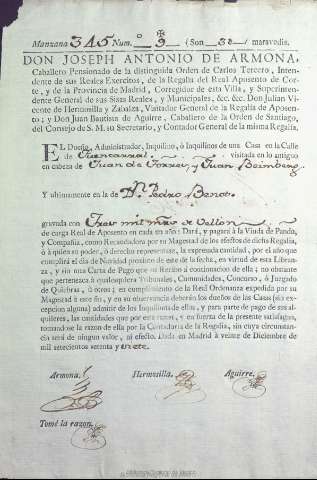 Manzana 345 Num.º 9 (Son 3U maravedis.
DON JOSEPH ANTONIO DE ARMONA,
Caballero Pensionado de la distinguida Orden de Carlos Tercero, Inten-
dente de sus Reales Exercitos, de la Regalía del Real Aposento de Cor-
te, y de la Provincia de Madrid, Corregidor de esta Villa, y Superinten-
dente General de sus Sisas Reales, y Municipales, &c. &c. Don Julian Vi-
cente de Hermosilla y Zabalza, Visitador General de la Regalía de Aposen-
to; y Don Juan Bautista de Aguirre, Caballero de la Orden de Santiago,
del Consejo de S. M. su Secretario, y Contador General de la misma Regalía.
EL Dueño, Administrador, Inquilino, ò Inquilinos de una Casa en la Calle
de Fuencarral visitada en lo antiguo
en cabeza de Juan de Torres, y Juan
Y ultimamente en la de Dn. Pedro Benot
gravada con Tres mil mrs de Vellon
de carga Real de Aposento en cada un año: Dará, y pagará à la Viuda de Pando,
y Compañia, como Recaudadora por su Magestad de los efectos de dicha Regalía,
ò à quien su poder, ò derecho representare, la expresada cantidad, por el año que
cumplirá el dia de Navidad proximo de este de la fecha, en virtud de esta Libran-
za, y sin una Carta de Pago que su Recibo à continuacion de ella; no obstante
que pertenezca à qualesquiera Tribunales, Comunidades, Concurso, ò Juzgado
de Quiebras, ò otros; en cumplimiento de la Real Ordenanza expedida por su
Magestad à este fin, y en su observancia deberán los dueños de las Casas (sin ex-
cepcion alguna) admitir de los Inquilinos de ellas, y para parte de pago de sus al-
quileres, las cantidades que por esta razon, y en fuerza de la presente satisfagan,
tomandose la razon de ella por la Contaduría de la Regalía, sin cuya circunstan-
cia será de ningun valor, ni efecto. Dada en Madrid à veinte de Diciembre de
mil setecientos setenta y siete.
Armona. Hermosilla. Aguirre.
Tomé la razon.